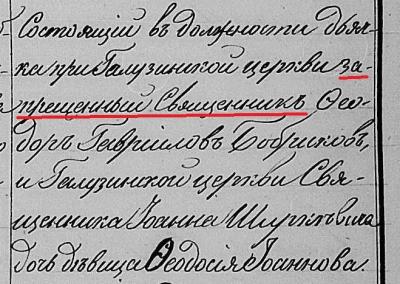 Состоящій въ должности дья-
ка при Галузинской церкви за-
прещенный Священникъ Ѳео-
доръ Гавріиловъ Бобриковъ,
и Галузинской церкви Свя-
щенника Іоанна Шуркевича
дочь дѣвица Ѳеодосія Іоаннова.